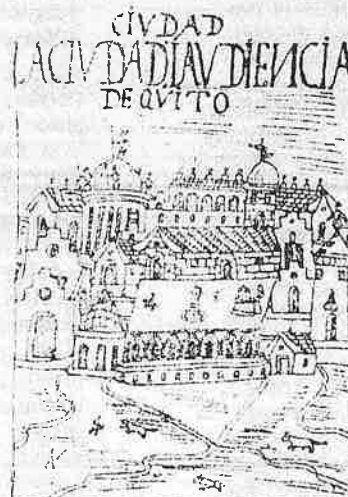 CIVDAD
LACIVDADIAVDIENCIA
DE QVITO